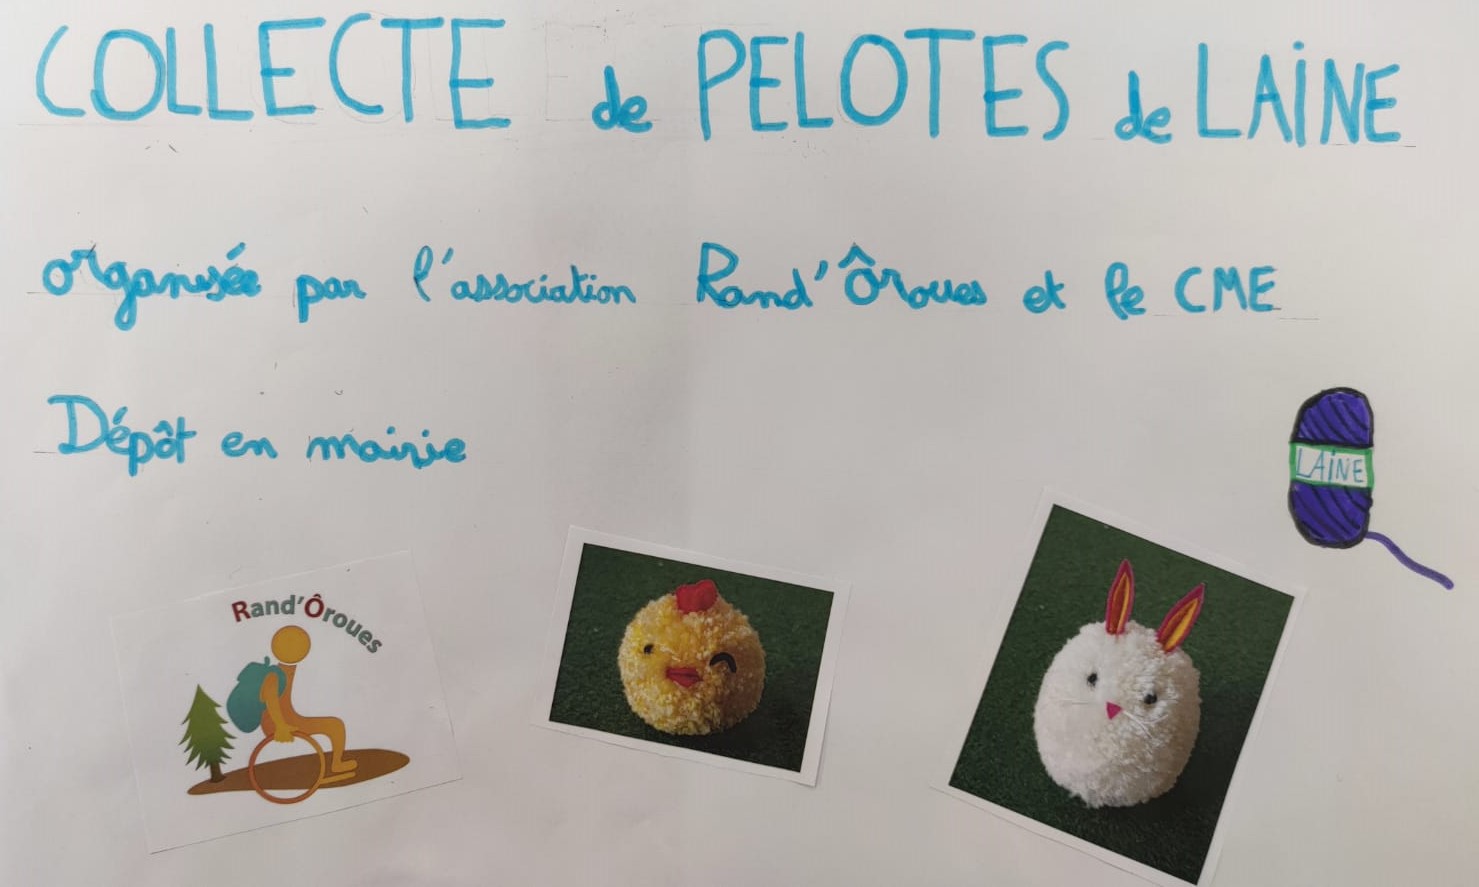 COLLECTE de PELOTES de LAINE
organisée par l'association Rand'Ôroues et le CME
Dépôt en mairie
LAINE
Rand'Ôroues